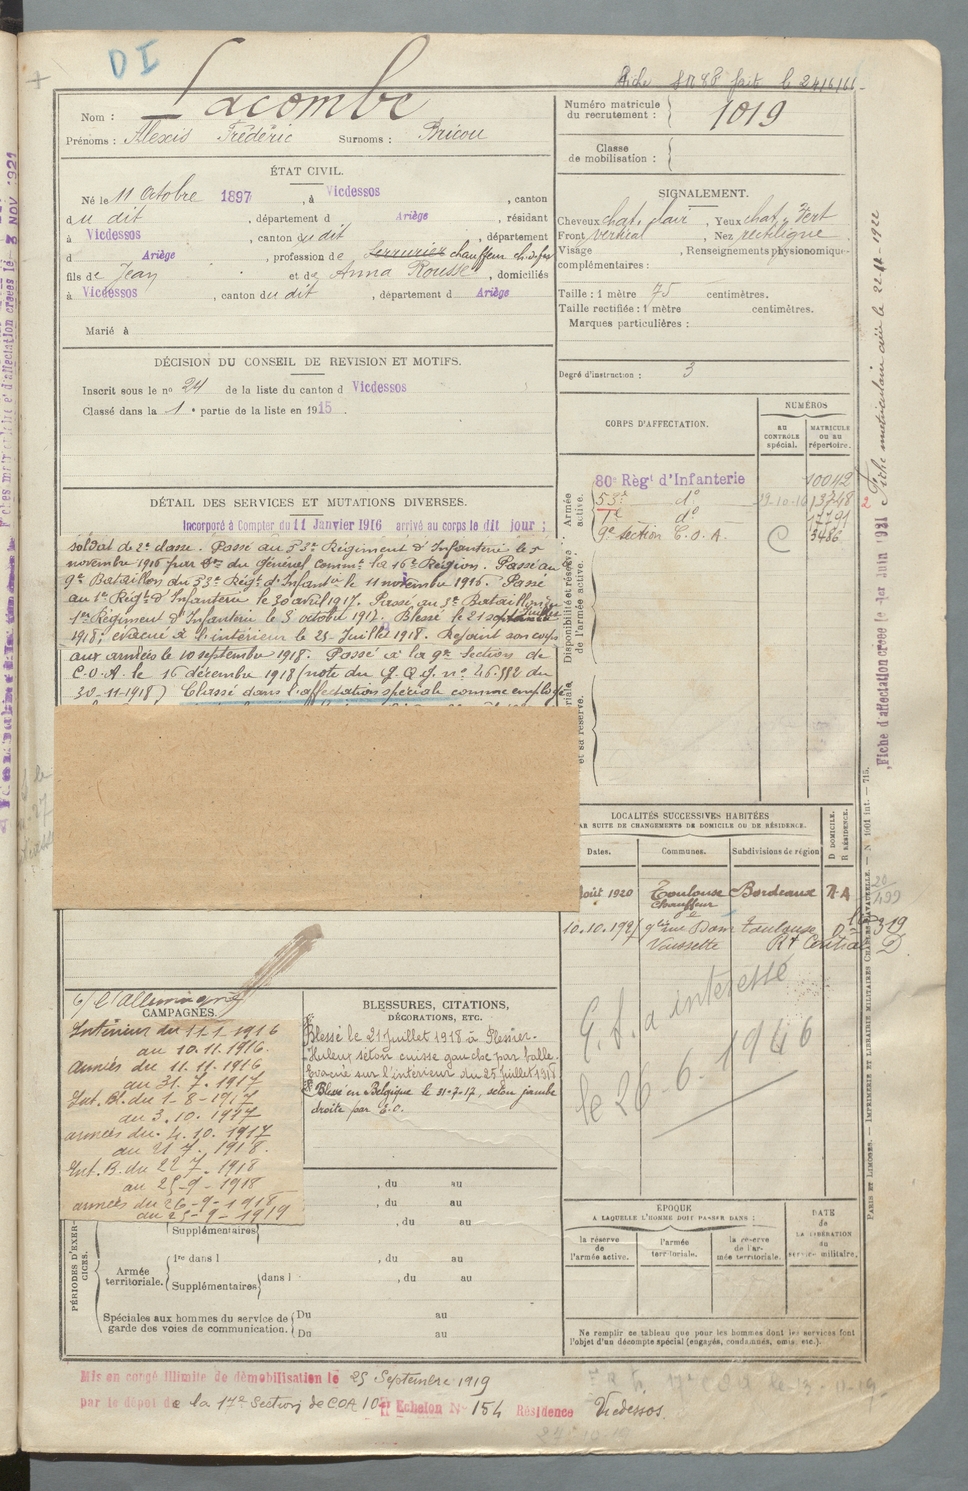 DI
Fiche
Nom : Lacombe
Prénoms : Alexis Frédéric Surnoms : Bricou
Numéro matricule du recrutement : 1019
Classe de mobilisation :
ÉTAT CIVIL.
Né le 11 Octobre 1897, à Vicdessos, canton
du dit, département d Ariège, résidant
à Vicdessos, canton du dit, département
d Ariège, profession de Serrurier chauffeur
fils de Jean et de Anna Rousse, domiciliés
à Vicdessos, canton du dit, département d Ariège
Marié à
SIGNALEMENT.
Cheveux chat. clair, Yeux chat. Vert
Front vertical, Nez rectiligne
Visage , Renseignements physionomique-
complémentaires :
Taille : 1 mètre 75 centimètres.
Taille rectifiée : 1 mètre centimètres.
Marques particulières :
Degré d'instruction : 3
DÉCISION DU CONSEIL DE REVISION ET MOTIFS.
Inscrit sous le no 24 de la liste du canton d Vicdessos
Classé dans la 1e partie de la liste en 1915.
CORPS D'AFFECTATION.
NUMÉROS
AU CONTRÔLE spécial.
MATRICULE OU AU répertoire.
Armée active.
80e Régt d'Infanterie 10042
53e do 13748
1er do
9e section C.O.A. C 3486
Disponibilité et réserve de l'armée active.
et sa réserve.
DÉTAIL DES SERVICES ET MUTATIONS DIVERSES.
Incorporé à Compter du 11 Janvier 1916 arrivé au corps le dit jour ;
soldat de 2e classe. Passé au 53e Régiment d'Infanterie le 5
novembre 1916 par Don du général Commt la 16e Région. Passé au
9e Bataillon du 53e Régt d'Infantrie le 11 novembre 1916. Passé
au 1er Régt d'Infanterie le 30 avril 1917. Passé au 3e Bataillon du
1er Régiment d'Infanterie le 3 octobre 1917. Blessé le 21 septembre juillet
1918 ; évacué à l'intérieur le 25 Juillet 1918. Rejoint son corps
aux armées le 10 septembre 1918. Passé à la 9e Section de
C.O.A. le 16 décembre 1918 (note du G.Q.G. no 46.552 du
30-11-1918) Classé dans l'affectation spéciale comme employé
LOCALITÉS SUCCESSIVES HABITÉES
PAR SUITE DE CHANGEMENTS DE DOMICILE OU DE RÉSIDENCE.
Dates. Communes. Subdivisions de région D DOMICILE. R RÉSIDENCE.
août 1920 Toulouse Bordeaux R A
Chauffeur
10.10.1927 rue Dom Vaissette Toulouse
Rt Central D
20
499
319
G.S. a intéressé
le 26-6-1946
c/ l'Allemagne
CAMPAGNES.
Intérieur du 11 1 1916
au 10.11.1916.
Armées du 11.11.1916
au 31.7.1917
Int. B. du 1-8-1917
au 3.10.1917
armées du 4.10.1917
au 21 7. 1918.
Int. B. du 22 7. 1918
au 25-9-1918
armées du 26-9-1918
au 25-9-1919
BLESSURES, CITATIONS,
DÉCORATIONS, ETC.
Blessé le 21 juillet 1918 à Plessier-
Huleux séton cuisse gauche par balle.
Evacué sur l'intérieur du 25 juillet 1918
Blessé en Belgique le 31-7-17, séton jambe
droite par E.O.
, du au
, du au
, du au
PÉRIODES D'EXERCICES.
Supplémentaires
Armée territoriale.
1re dans l , du au
Supplémentaires dans l , du au
Spéciales aux hommes du service de garde des voies de communication.
Du au
Du au
ÉPOQUE
A LAQUELLE L'HOMME DOIT PASSER DANS :
la réserve de l'armée active.
l'armée territoriale.
la réserve de l'armée territoriale.
DATE de LA LIBÉRATION du service militaire.
Ne remplir ce tableau que pour les hommes dont les services font
l'objet d'un décompte spécial (engagés, condamnés, omis, etc.).
Mis en congé illimité de démobilisation le 25 Septembre 1919
par le dépôt de la 17e Section de COA 10e Echelon No 154 Résidence Vicdessos
Fiche matriculaire
Fiche d'affectation créée le 1er Juin 1931
PARIS ET LIMOGES. — IMPRIMERIE ET LIBRAIRIE MILITAIRES CHARLES-LAVAUZELLE. — N° 1001 int. — 715.